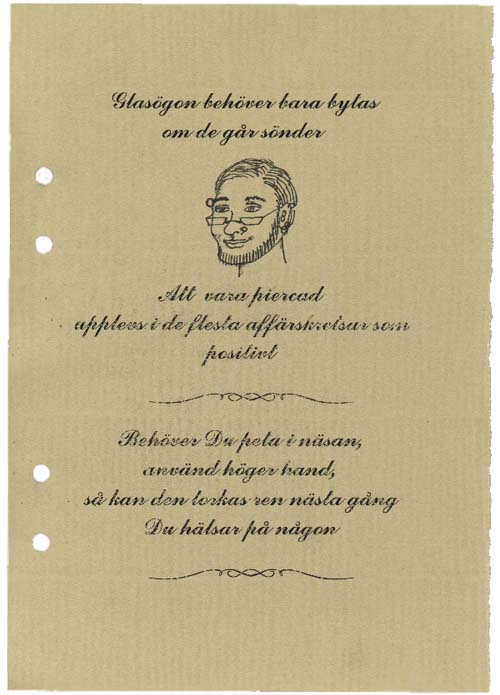 Glasögon behöver bara bytas
om de går sönder
Att vara piercad
upplevs i de flesta affärskretsar som
positivt
Behöver Du peta i näsan,
använd höger hand,
så kan den torkas ren nästa gång
Du hälsar på någon